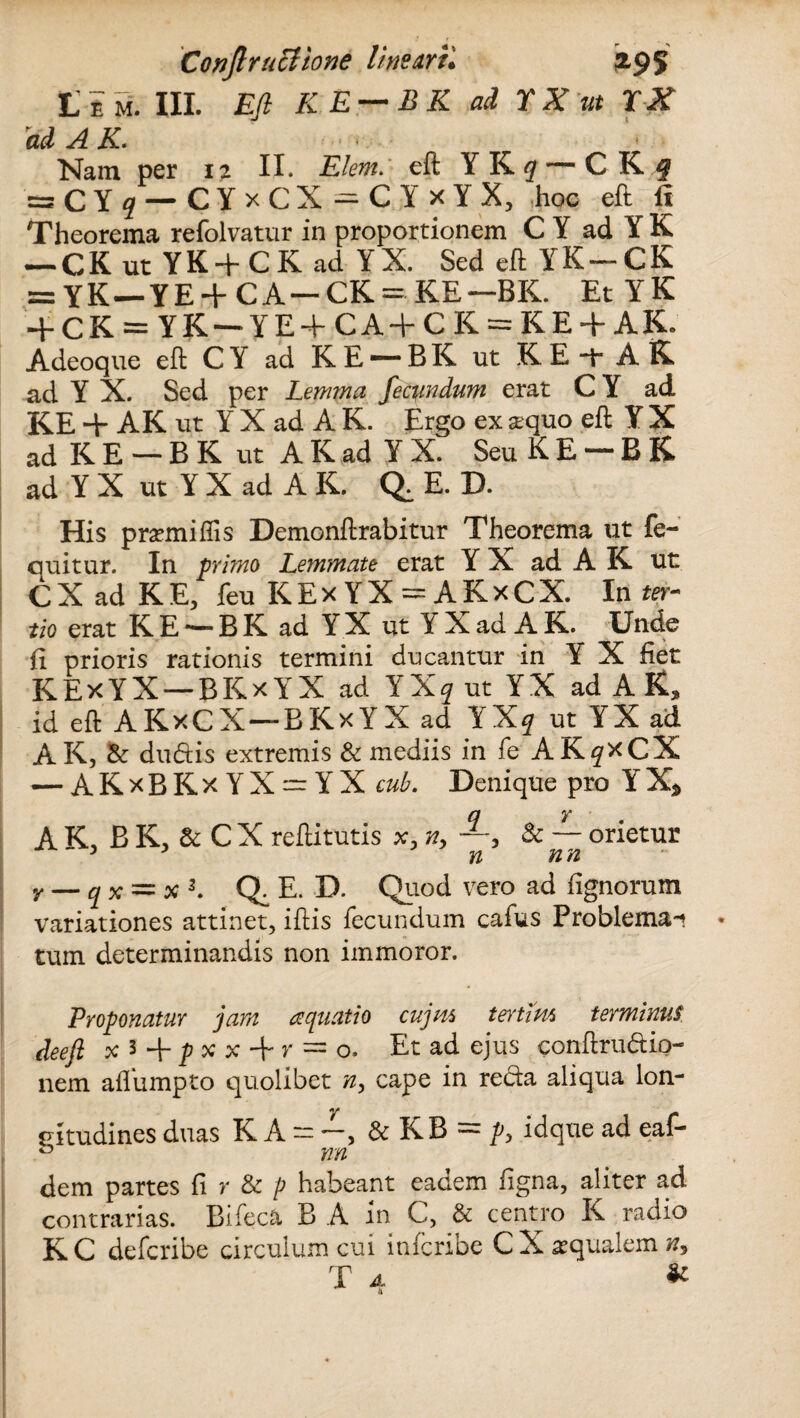 Conſtructione lineari. 295
LEM. III. Eſt KE — BK ad YX ut YX
ad AK.
Nam per 12 II. Elem. eſt YKq — CKq
= CYq — CY × CX = CY × YX, hoc eſt ſi
Theorema reſolvatur in proportionem CY ad YK
— CK ut YK + CK ad YX. Sed eſt YK — CK
= YK — YE + CA — CK = KE — BK. Et YK
+ CK = YK — YE + CA + CK = KE + AK.
Adeoque eſt CY ad KE — BK ut KE + AK
ad YX. Sed per Lemma ſecundum erat CY ad
KE + AK ut YX ad AK. Ergo ex æquo eſt YX
ad KE — BK ut AK ad YX. Seu KE — BK
ad YX ut YX ad AK. Q. E. D.
His præmiſſis Demonſtrabitur Theorema ut ſe-
quitur. In primo Lemmate erat YX ad AK ut
CX ad KE, ſeu KE × YX = AK × CX. In ter-
tio erat KE — BK ad YX ut YX ad AK. Unde
ſi prioris rationis termini ducantur in YX fiet
KE×YX — BK×YX ad YXq ut YX ad AK,
id eſt AK×CX — BK×YX ad YXq ut YX ad
AK, & ductis extremis & mediis in ſe AKq×CX
— AK×BK×YX = YX cub. Denique pro YX,
AK, BK, & CX reſtitutis x, n, q/n, & r/nn orietur
r — qx = x³. Q. E. D. Quod vero ad ſignorum
variationes attinet, iſtis ſecundum caſus Problema-
tum determinandis non immoror.
Proponatur jam æquatio cujus tertius terminus
deeſt x³ + pxx + r = 0. Et ad ejus conſtructio-
nem aſſumpto quolibet n, cape in recta aliqua lon-
gitudines duas KA = r/nn, & KB = p, idque ad eaſ-
dem partes ſi r & p habeant eadem ſigna, aliter ad
contrarias. Biſeca BA in C, & centro K radio
KC deſcribe circulum cui inſcribe CX æqualem n,
T 4 &